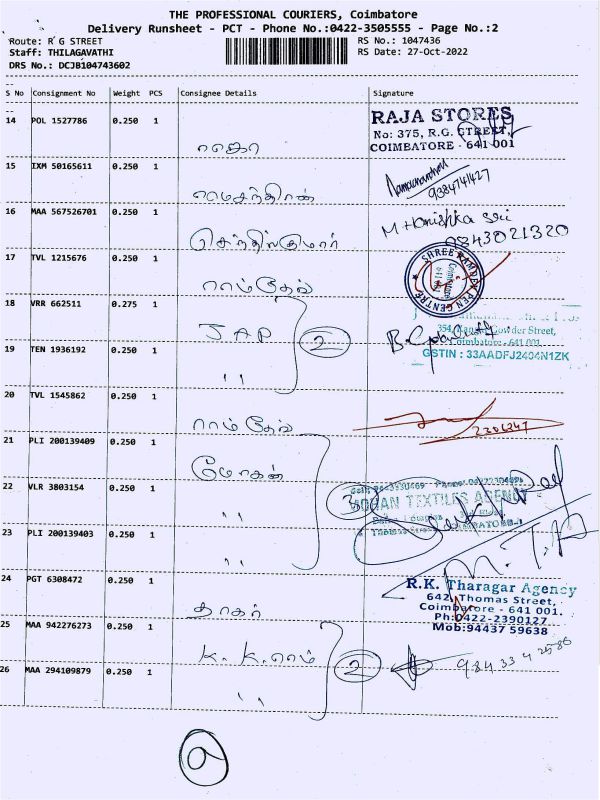 THE PROFESSIONAL COURIERS, Coimbatore
Delivery Runsheet - PCT - Phone No.:0422-3505555 - Page No.:2
Route: R G STREET RS No.: 1047436
Staff: THILAGAVATHI RS Date: 27-Oct-2022
DRS No.: DCJB104743602
S No Consignment No Weight PCS Consignee Details Signature
14 POL 1527786 0.250 1 RAJA STORES
No: 375, R.G. STREET,
COIMBATORE - 641 001
ராஜா
15 IXM 50165611 0.250 1
9384741427
ராமசந்திரன்
16 MAA 567526701 0.250 1 M
9843021320
செந்தில்குமார்
17 TVL 1215676 0.250 1 SHREE RAMDEV PEN CENTRE
ராம்தேவ்
18 VRR 662511 0.275 1
JAP 2
354, Gowder Street,
Coimbatore - 641 001
19 TEN 1936192 0.250 1 GSTIN : 33AADFJ2404N1ZK
"
20 TVL 1545862 0.250 1
ராம்தேவ்
21 PLI 200139409 0.250 1
மோகன்
22 VLR 3803154 0.250 1 3 MOHAN TEXTILES AGENCY
"
23 PLI 200139403 0.250 1
" M.T.A
24 PGT 6308472 0.250 1 R.K. Tharagar Agency
642, Thomas Street,
Coimbatore - 641 001.
தாகர் Ph:0422-2390127
Mob:94437 59638
25 MAA 942276273 0.250 1
K. K. ராம் 2
26 MAA 294109879 0.250 1
"
9